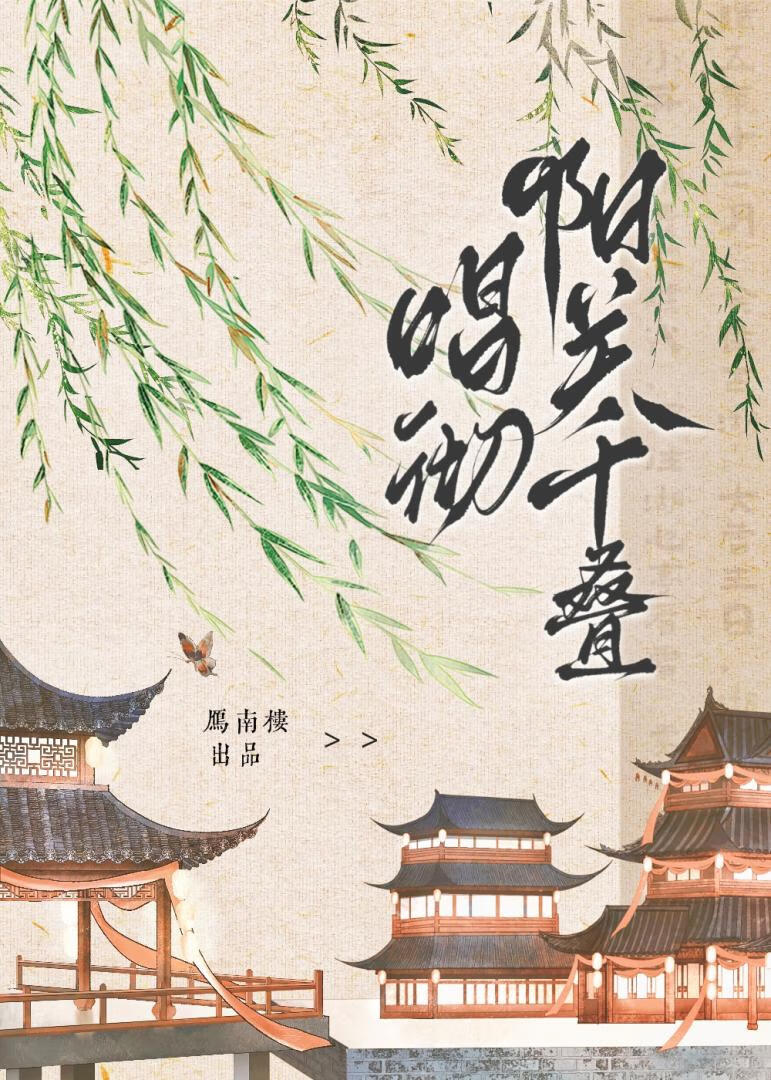 阳关千叠
唱彻
鴈南樓
出品 >>